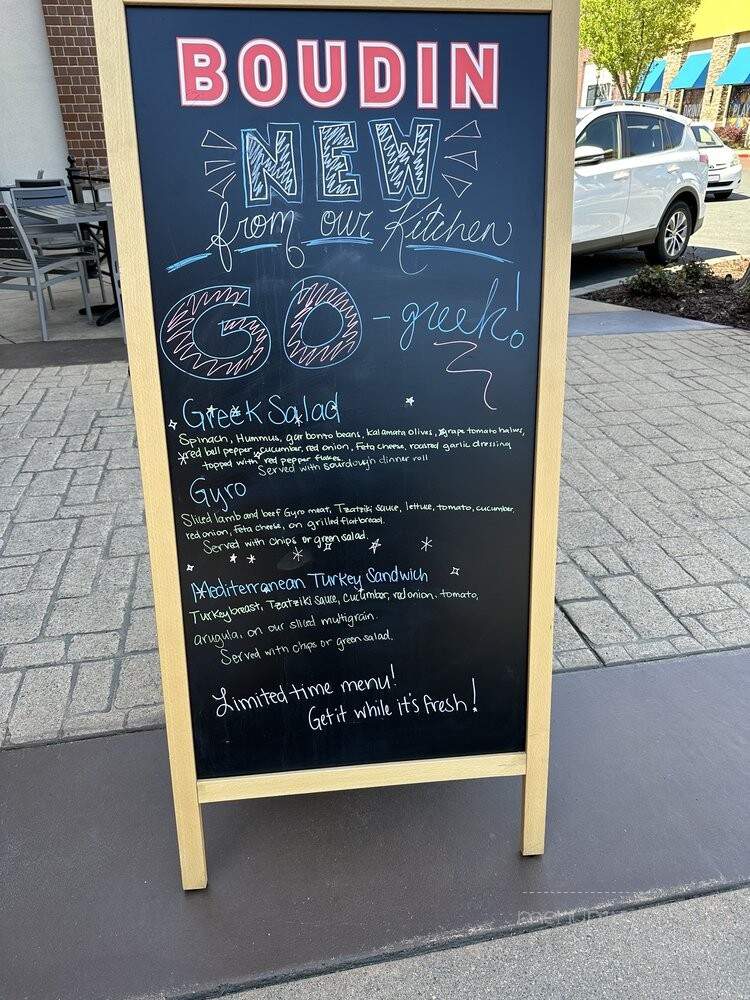 BOUDIN
NEW
from our Kitchen
GO - greek!
Greek Salad
Spinach, Hummus, garbonzo beans, kalamata olives, grape tomato halves,
red bell pepper, cucumber, red onion, feta cheese, roasted garlic dressing
topped with red pepper flakes.
Served with sourdough dinner roll
Gyro
Sliced lamb and beef Gyro meat, Tzatziki sauce, lettuce, tomato, cucumber,
red onion, feta cheese, on grilled flatbread.
Served with chips or green salad.
Mediterranean Turkey Sandwich
Turkey breast, Tzatziki sauce, cucumber, red onion, tomato,
arugula, on our sliced multigrain.
Served with chips or green salad.
Limited time menu!
Get it while it's fresh!